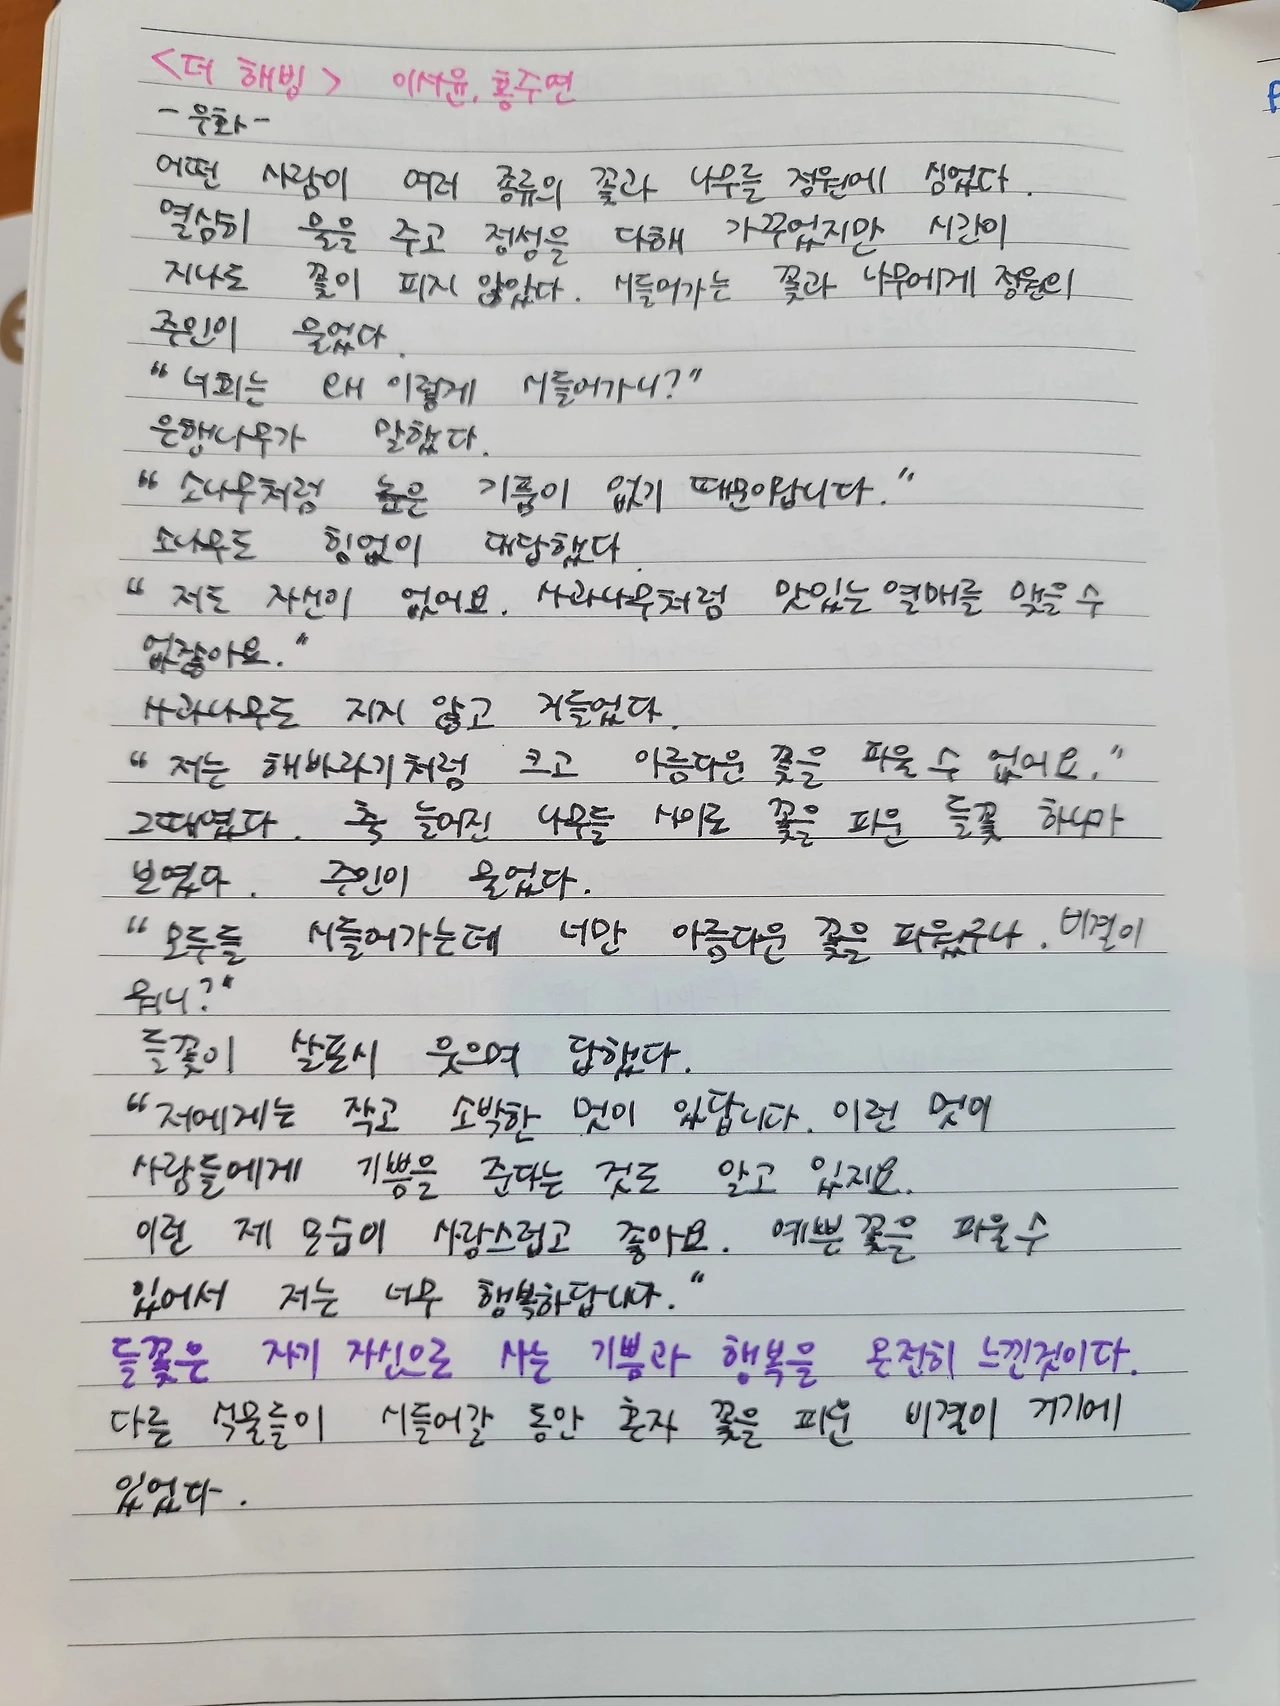 <더 해빙> 이서윤, 홍주연
- 우화 -
어떤 사람이 여러 종류의 꽃과 나무를 정원에 심었다.
열심히 물을 주고 정성을 다해 가꾸었지만 시간이
지나도 꽃이 피지 않았다. 시들어가는 꽃과 나무에게 정원의
주인이 물었다.
"너희는 왜 이렇게 시들어가니?"
은행나무가 말했다.
"소나무처럼 높은 기품이 없기 때문이랍니다."
소나무도 힘없이 대답했다.
"저도 자신이 없어요. 사과나무처럼 맛있는 열매를 맺을 수
없잖아요."
사과나무도 지지 않고 거들었다.
"저는 해바라기처럼 크고 아름다운 꽃을 피울 수 없어요."
그때였다. 축 늘어진 나무들 사이로 꽃을 피운 들꽃 하나가
보였다. 주인이 물었다.
"모두들 시들어가는데 너만 아름다운 꽃을 피웠구나. 비결이
뭐니?"
들꽃이 살포시 웃으며 답했다.
"저에게는 작고 소박한 멋이 있답니다. 이런 멋이
사람들에게 기쁨을 준다는 것도 알고 있지요.
이런 제 모습이 사랑스럽고 좋아요. 예쁜 꽃을 피울 수
있어서 저는 너무 행복하답니다."
들꽃은 자기 자신으로 사는 기쁨과 행복을 온전히 느낀것이다.
다른 식물들이 시들어갈 동안 혼자 꽃을 피운 비결이 거기에
있었다.